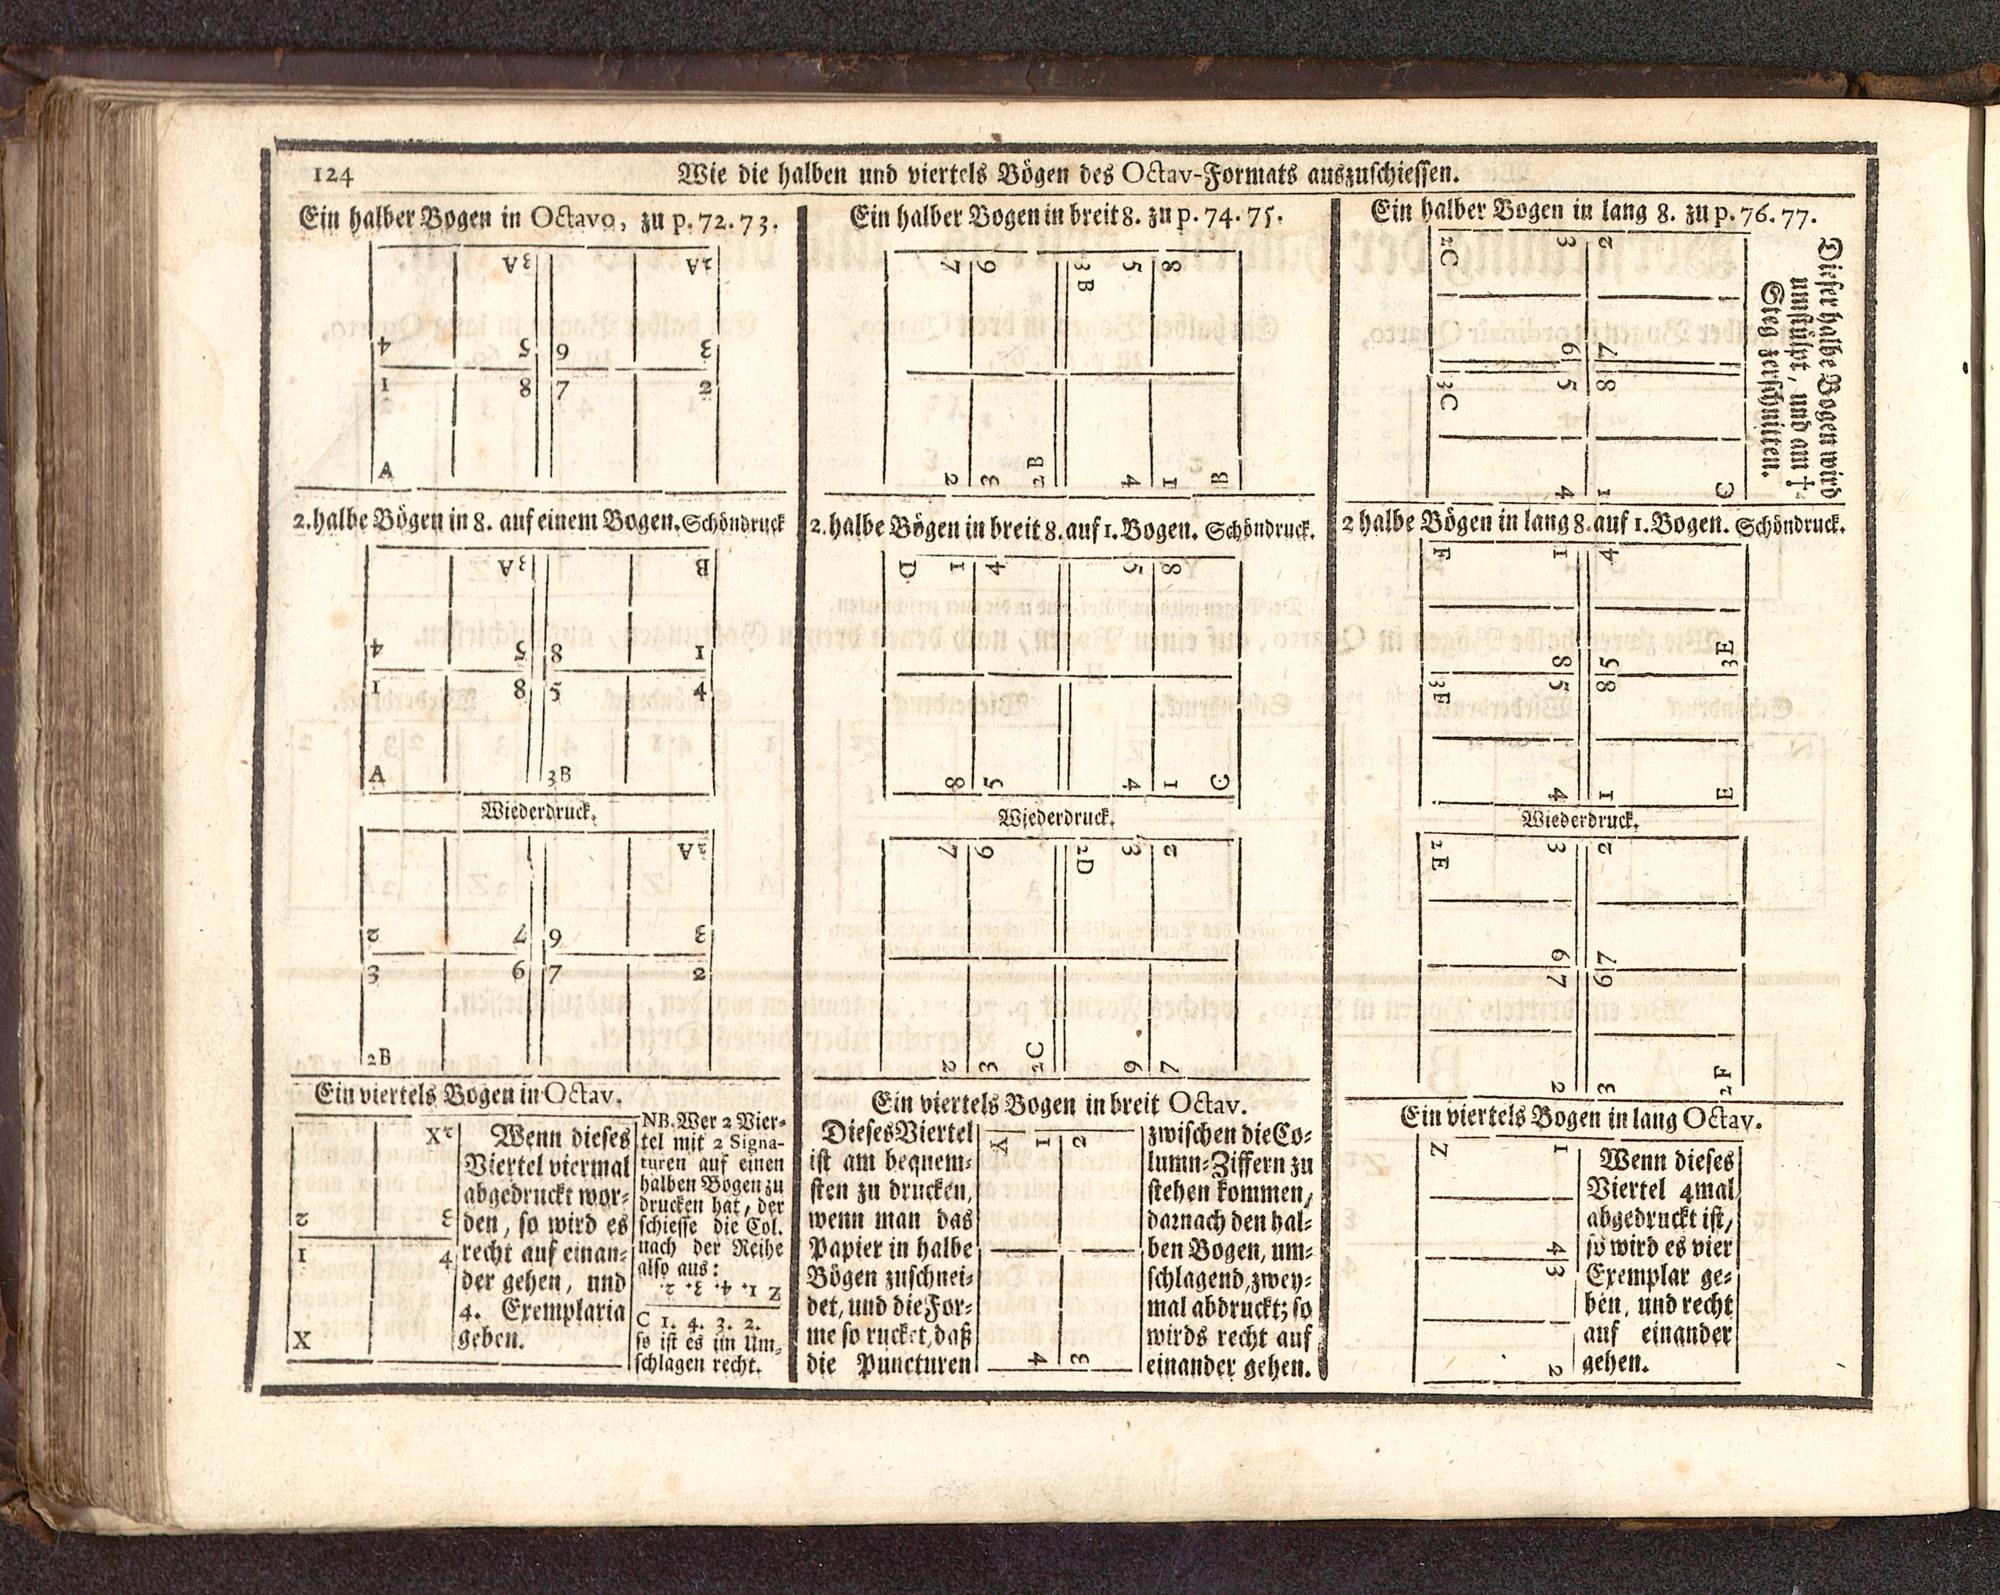 124
Wie die halben und viertels Bögen des Octav-Formats auszuschiessen.
Ein halber Bogen in Octavo, zu p. 72. 73.
3A 2A
4 5 6 3
1 8 7 2
A
2. halbe Bögen in 8. auf einem Bogen. Schöndruck
3A B
4 5 8 1
1 8 5 4
A 3B
Wiederdruck.
2A
2 7 6 3
3 6 7 2
2B
Ein viertels Bogen in Octav.
X2
2 3
1 4
X
Wenn dieses
Viertel viermal
abgedruckt wor-
den, so wird es
recht auf einan-
der gehen, und
4. Exemplaria
geben.
NB. Wer 2 Vier-
tel mit 2 Signa-
turen auf einen
halben Bogen zu
drucken hat, der
schiesse die Col.
nach der Reihe
also aus:
Z 1. 4. 3. 2.
C 1. 4. 3. 2.
so ist es im Um-
schlagen recht.
Ein halber Bogen in breit 8. zu p. 74. 75.
7 6 3B 5 8
2 3 2B 4 1 B
2. halbe Bögen in breit 8. auf 1. Bogen. Schöndruck.
D 1 4 5 8
8 5 4 1 C
Wiederdruck.
7 6 2D 3 2
2 3 2C 6 7
Ein viertels Bogen in breit Octav.
Dieses Viertel
ist am bequem-
sten zu drucken,
wenn man das
Papier in halbe
Bögen zuschnei-
det, und die For-
me so rucket, daß
die Puncturen
Y 1 2
4 3
zwischen die Co-
lumn-Ziffern zu
stehen kommen,
darnach den hal-
ben Bogen, um-
schlagend, zwey-
mal abdruckt; so
wirds recht auf
einander gehen.
Ein halber Bogen in lang 8. zu p. 76. 77.
2C 3 2
6 7
3C 5 8
4 1 C
Dieser halbe Bogen wird
umstülpt, und am †
Steg zerschnitten.
2 halbe Bögen in lang 8. auf 1. Bogen. Schöndruck.
F 1 4
8 5 3E
3F 5 8
4 1 E
Wiederdruck.
2E 3 2
6 7
7 6
2 3 2F
Ein viertels Bogen in lang Octav.
Z 1
4
3
2
Wenn dieses
Viertel 4mal
abgedruckt ist,
so wird es vier
Exemplar ge-
ben, und recht
auf einander
gehen.